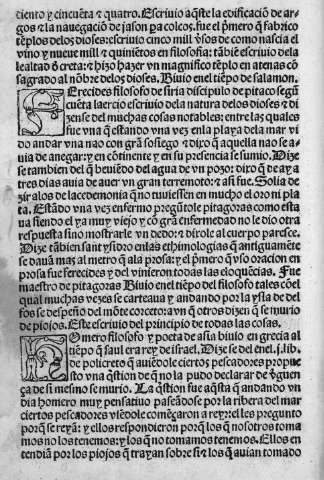 ciento y cincuẽta & quatro. Escriuio aq̃ste la edificaciõ de ar-
gos & la nauegaciõ de jason pa colcos. fue el p̃mero q̃ fabrico
tẽplos delos dioses: escriuio cinco mill v̉sos de como nascia el
vino y nueue mill & quiniẽtos en filosofia: tãbiẽ escriuio dela
lealtad d̉ creta: & hizo hazer vn magnifico tẽplo en atenas cõ
sagrado al nõbre delos dioses. Biuio enel tiẽpo de salamon.
Ferecides filosofo de siria discipulo de pitaco segũ
cuẽta laercio escriuio dela natura delos dioses & di
zense del muchas cosas notables: entre las quales
fue vna q̃ estando vna vez enla playa dela mar vi
do andar vna nao con grã sosiego & dixo q̃ aquella nao se a-
uia de anegar: y en cõtinente y en su presencia se sumio. Dize
se tambien del q̃ beuiẽdo del agua de vn pozo: dixo q̃ de ay a
tres dias auia de auer vn gran terremoto: & asi fue. Solia de
zir alos de lacedemonia q̃ no tuuiessen en mucho el oro ni pla
ta. Estãdo vna vez enfermo pregũtole pitagoras como esta
ua siendo el ya muy viejo y cõ grã enfermedad no le dio otra
respuesta sino mostrarle vn dedo: & dixole al cuerpo paresce.
Dize tãbien sant ysidro enlas ethimologias q̃ antiguamẽte
se dauã mas al metro q̃ ala prosa: y el p̃mero q̃ vso oracion en
prosa fue ferecides y del vinieron todas las eloquẽcias. Fue
maestro de pitagoras Biuio enel tiẽpo del filosofo tales cõel
qual muchas vezes se carteaua y andando por la ysla de del
fos se despeño del mõte corceto: a vn q̃ otros dizen q̃ se murio
de piojos. Este escriuio del principio de todas las cosas.
Omero filosofo y poeta de asia biuio en grecia al
tiẽpo q̃ saul era rey de israel. Dize se del enel .j. lib.
de policreto q̃ auiẽdole ciertos pescadores propue
sto vna q̃stion q̃ de no la pudo declarar de v̉guen
ça de si mesmo se murio. La q̃stion fue aq̃sta q̃ andando vn
dia homero muy pensatiuo paseãdose por la ribera del mar
ciertos pescadores viẽdole comẽçaron a reyr: el les pregunto
porq̃ se reyã: y ellos respondieron por los q̃ nosotros toma
mos no los tenemos: y los q̃ no tomamos tenemos. Ellos en
tendiã por los piojos q̃ trayan sobre si & los q̃ auian tomado